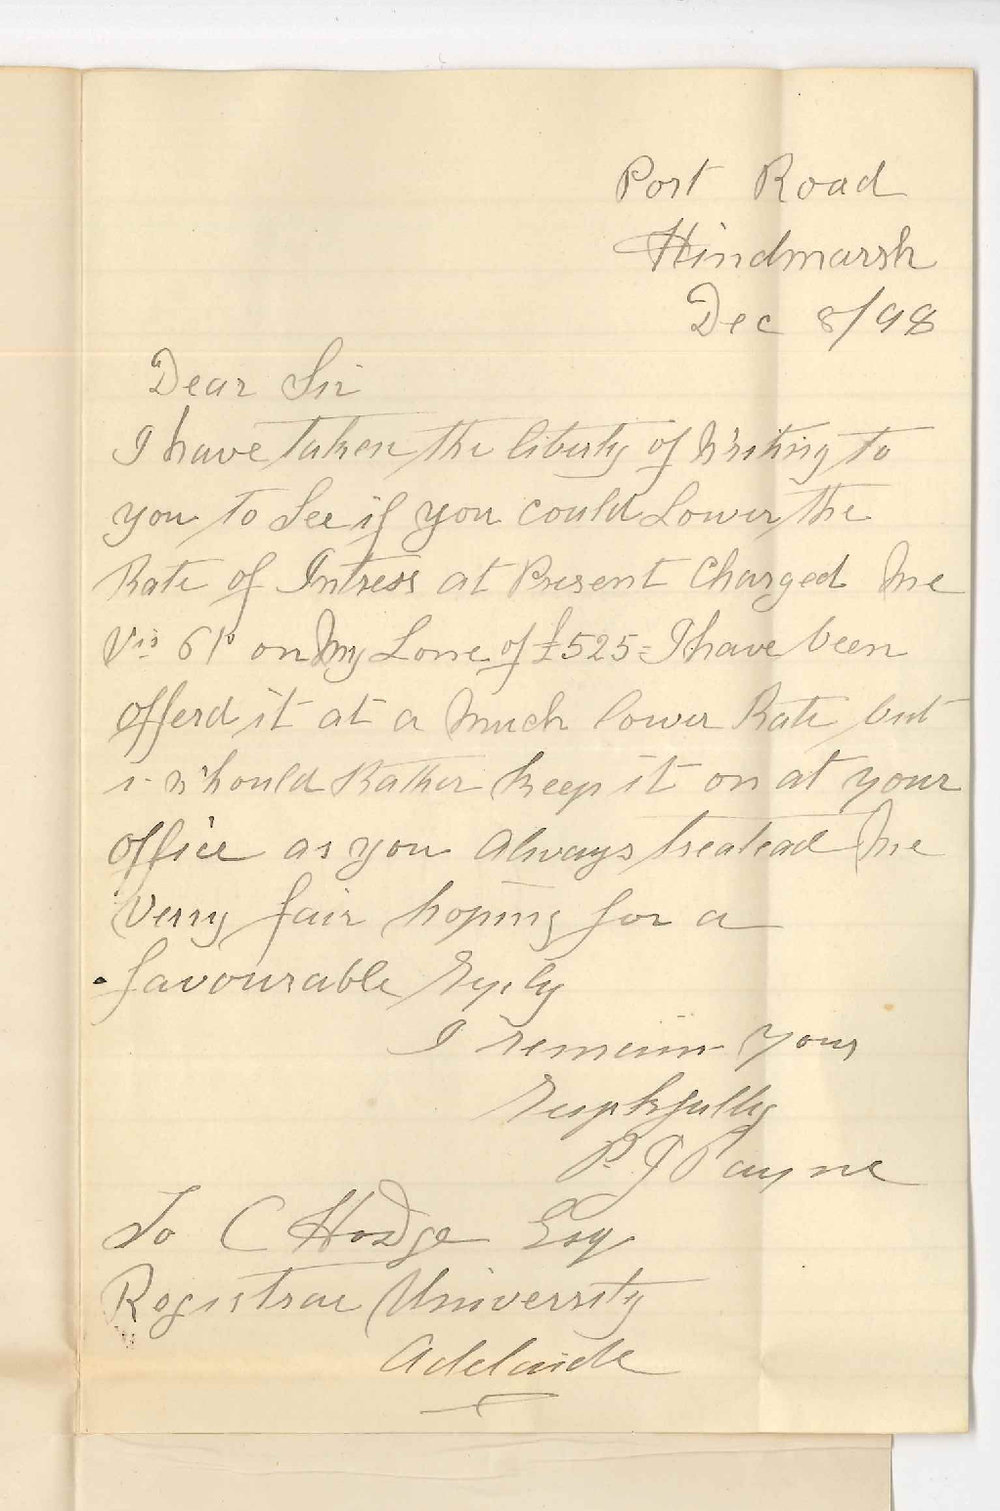 Port Road
Hindmarsh
Dec 8/98
Dear Sir
I have taken the liberty of Writing to
you to See if you could Lower the
Rate of Intress at Present Charged Me
Viz 6% on My Lone of £525= I have been
offerd it at a Much lower Rate but
i Whould Rather keep it on at your
office as you Always treatead Me
Verry fair hoping for a
favourable Reply
I remain Yours
P. J Payne
To C Hodge Esq
Registrar University
Adelaide